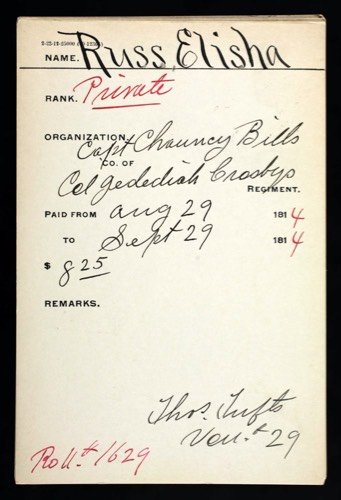 NAME. Russ, Elisha
RANK. Private
ORGANIZATION. Capt Chauncy Bills
CO. OF
Col Jedediah Crosbys
REGIMENT.
PAID FROM Aug 29 1814
TO Sept 29 1814
$ 8 25
REMARKS.
Thos. Tufts
Vou. # 29
Roll. # 1629